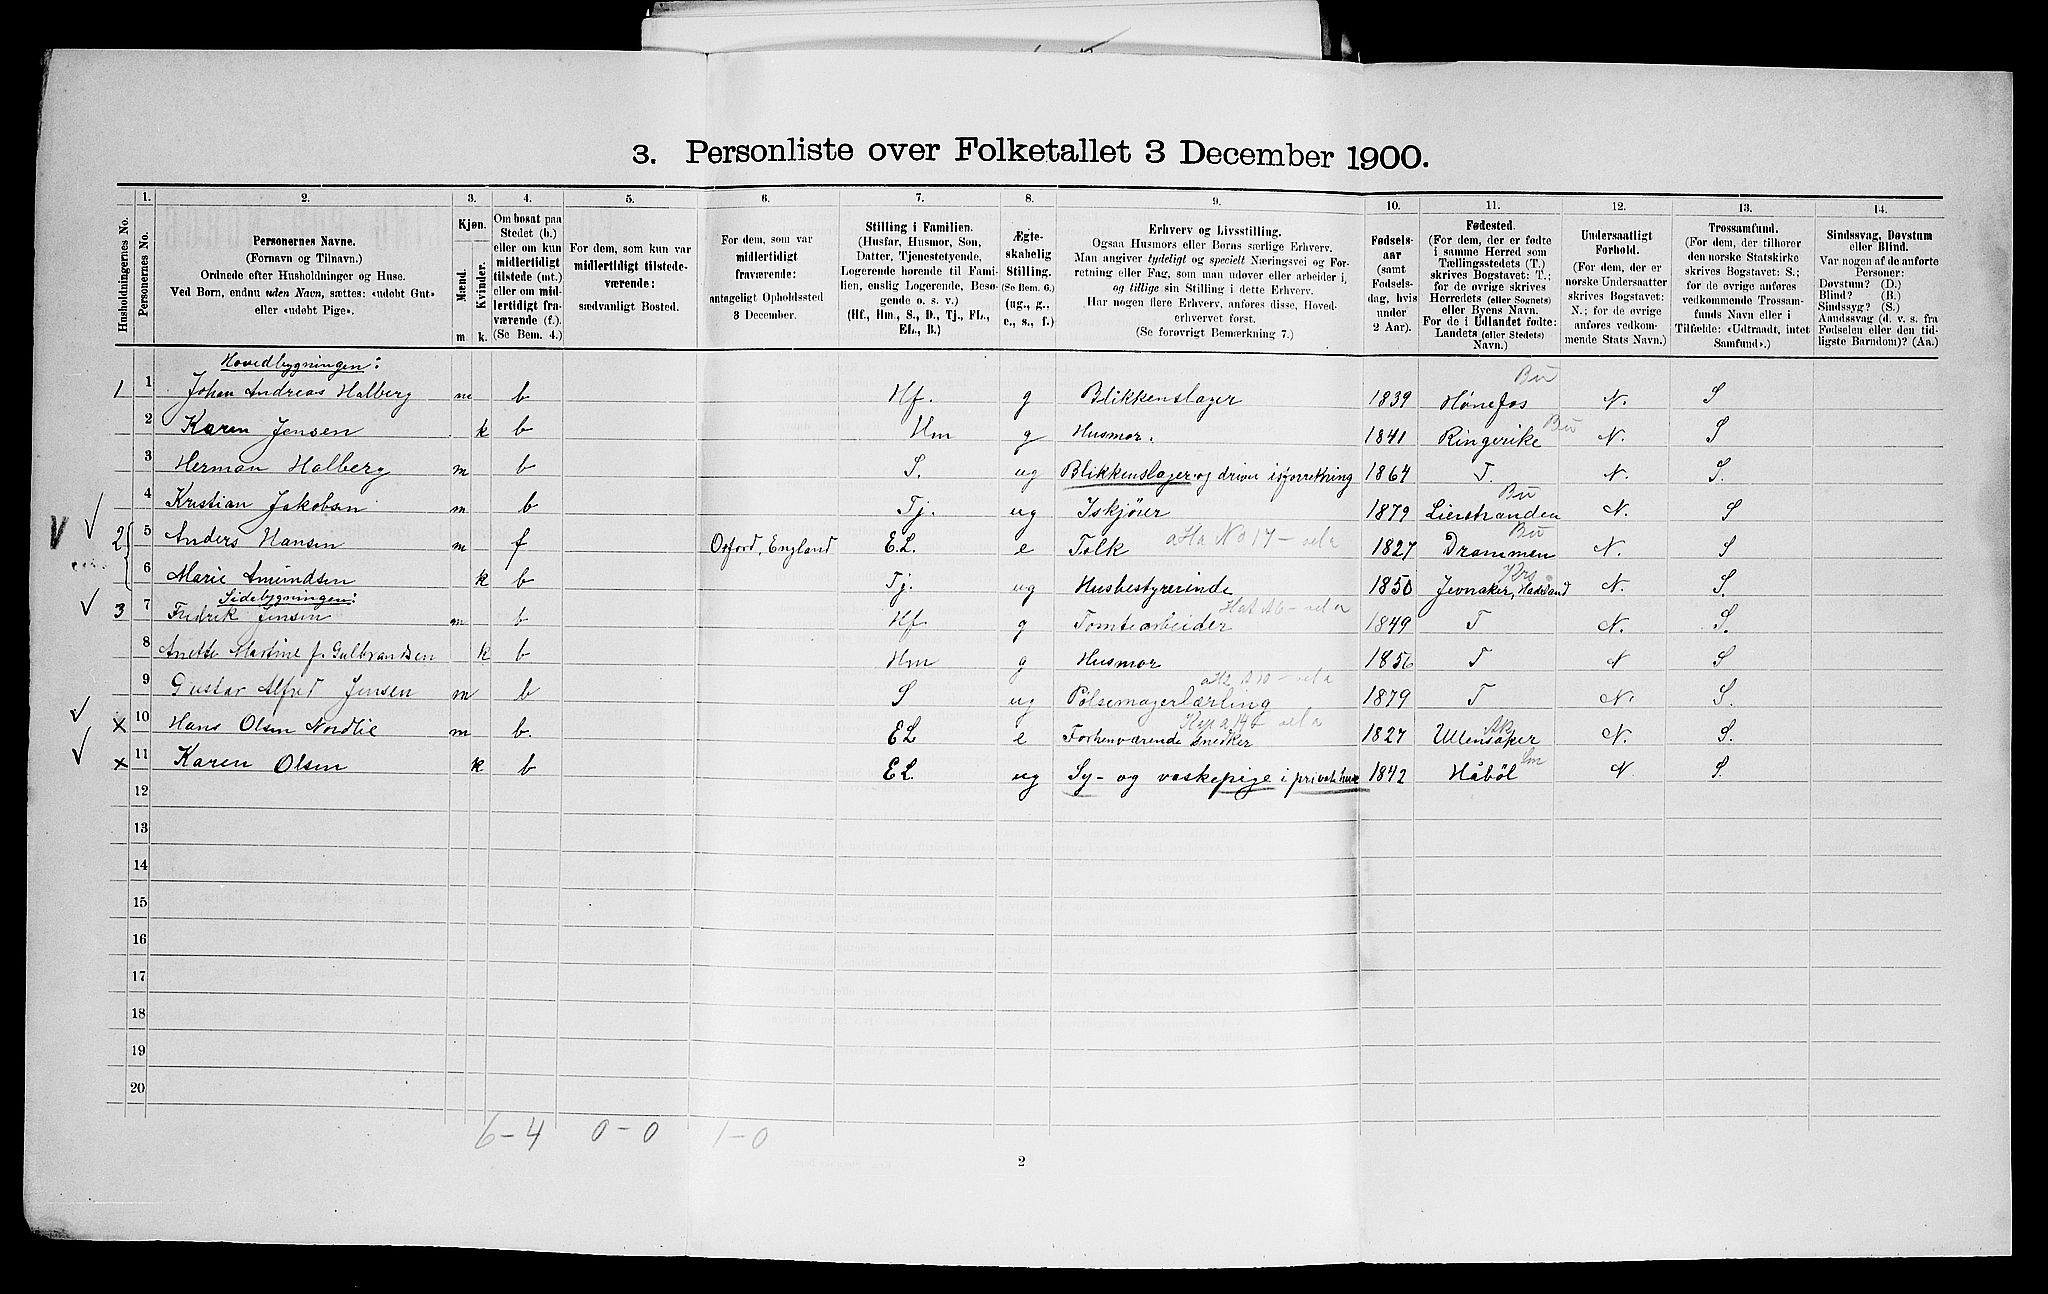 3. Personliste over Folketallet 3 December 1900.
1. 2. 3. 4. 5. 6. 7. 8. 9. 10. 11. 12. 13. 14.
Husholdningernes No.
Personernes No.
Personernes Navne.
(Fornavn og Tilnavn.)
Ordnede efter Husholdninger og Huse.
Ved Børn, endnu uden Navn, sættes: «udøbt Gut»
eller «udøbt Pige».
Kjøn.
Mænd. Kvinder.
m. k.
Om bosat paa
Stedet (b.)
eller om kun
midlertidigt
tilstede (mt.)
eller om mid-
lertidigt fra-
værende (f.)
(Se Bem. 4.)
For dem, som kun var
midlertidigt tilstede-
værende:
sædvanligt Bosted.
For dem, som var
midlertidigt
fraværende:
antageligt Opholdssted
3 December.
Stilling i Familien.
(Husfar, Husmor, Søn,
Datter, Tjenestetyende,
Logerende hørende til Fami-
lien, enslig Logerende, Besø-
gende o. s. v.)
(Hf., Hm., S., D., Tj., FL.,
EL., B.)
Ægte-
skabelig
Stilling.
(Se Bem. 6.)
(ug., g.,
e., s., f.)
Erhverv og Livsstilling.
Ogsaa Husmors eller Børns særlige Erhverv.
Man angiver tydeligt og specielt Næringsvei og For-
retning eller Fag, som man udøver eller arbeider i,
og tillige sin Stilling i dette Erhverv.
Har nogen flere Erhverv, anføres disse, Hoved-
erhvervet først.
(Se forøvrigt Bemærkning 7.)
Fødsels-
aar
(samt
Fødsels-
dag, hvis
under
2 Aar).
Fødested.
(For dem, der er fødte
i samme Herred som
Tællingsstedets (T.)
skrives Bogstavet: T.;
for de øvrige skrives
Herredets (eller Sognets)
eller Byens Navn.
For de i Udlandet fødte:
Landets (eller Stedets)
Navn.)
Undersaatligt
Forhold.
(For dem, der er
norske Undersaatter
skrives Bogstavet:
N.; for de øvrige
anføres vedkom-
mende Stats Navn.)
Trossamfund.
(For dem, der tilhører
den norske Statskirke
skrives Bogstavet: S.;
for de øvrige anføres
vedkommende Trossam-
funds Navn eller i
Tilfælde: «Udtraadt, intet
Samfund».)
Sindssvag, Døvstum
eller Blind.
Var nogen af de anførte
Personer:
Døvstum? (D.)
Blind? (B.)
Sindssyg? (S.)
Aandssvag (d. v. s. fra
Fødselen eller den tid-
ligste Barndom)? (Aa.)
Hovedbygningen:
1 1 Johan Andreas Halberg m b Hf. g Blikkenslager 1839 Hønefos Bu N. S
2 Karen Jensen k b Hm g Husmor. 1841 Ringerike Bu N. S
3 Herman Halberg m b S. ug Blikkenslager og driver isforretning 1864 T. N. S.
4 Kristian Jakobsen m b Tj. ug Iskjører 1879 Lierstranden Bu N. S
2 5 Anders Hansen m f Oxford, England E.L. e Tolk 1827 Drammen Bu N. S
6 Marie Amundsen k b Tj. ug Husbestyrerinde 1850 Jevnaker, Hadeland N. S.
Sidebygningen:
3 7 Fredrik Jensen m b Hf. g Tomtearbeider 1849 T N. S.
8 Anette Martine f. Gulbrandsen k b Hm g Husmor 1856 T N S
9 Gustav Alfred Jensen m b S ug Pølsemagerlærling 1879 T N. S.
x 10 Hans Olsen Nordlie m b. EL e Forhenværende snedker 1827 Ullensaker Ak N. S.
x 11 Karen Olsen k b EL. ug Sy- og vaskepige i private huse 1842 Håbøl Sm N. S.
12
13
14
15
16
17
18
19
20
6-4 0-0 1-0
2